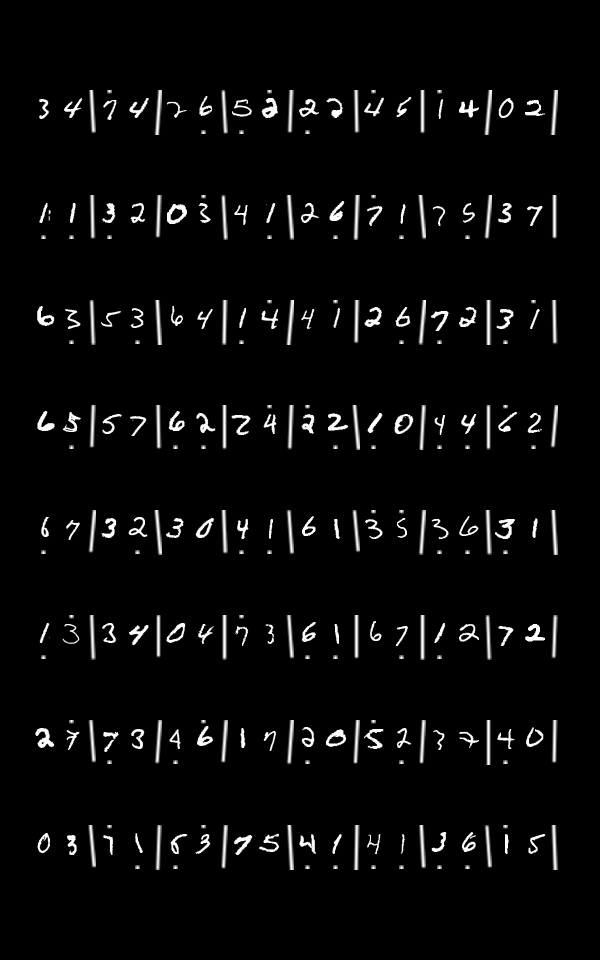 3 4 | 7 4 | 2 6 | 5 2 | 2 2 | 4 5 | 1 4 | 0 2 |
1 1 | 3 2 | 0 3 | 4 1 | 2 6 | 7 1 | 7 5 | 3 7 |
6 3 | 5 3 | 6 4 | 1 4 | 4 1 | 2 6 | 7 2 | 3 1
6 5 | 5 7 | 6 2 | 2 4 | 2 2 | 1 0 | 4 4 | 6 2 |
6 7 | 3 2 | 3 0 | 4 1 | 6 1 | 3 5 | 3 6 | 3 1 |
1 3 | 3 4 | 0 4 | 7 3 | 6 1 | 6 7 | 1 2 | 7 2 |
2 7 | 7 3 | 4 6 | 1 7 | 2 0 | 5 2 | 3 7 | 4 0 |
0 3 | 7 1 | 5 3 | 7 5 | 4 1 | 4 1 | 3 6 | 1 5 |